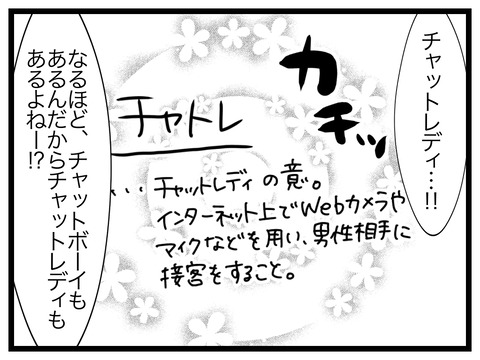 チャットレディ…!!
カチッ
チャトレ
…チャットレディの意。
インターネット上でWebカメラや
マイクなどを用い、男性相手に
接客をすること。
なるほど、チャットボーイも
あるんだからチャットレディも
あるよねー!?